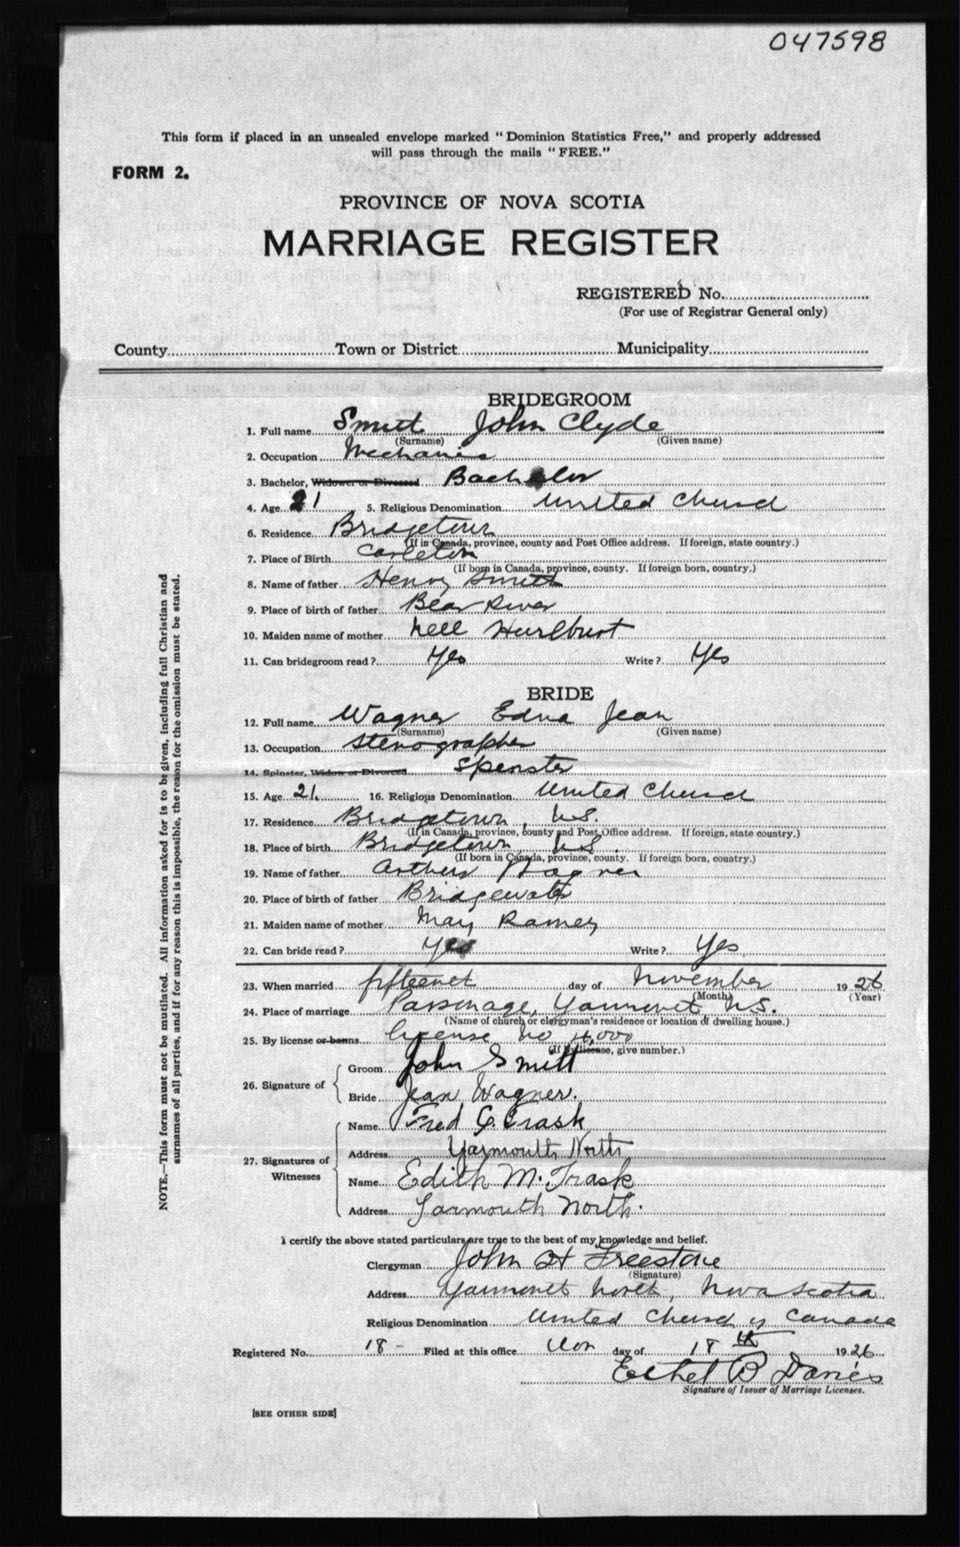 047598
This form if placed in an unsealed envelope marked "Dominion Statistics Free," and properly addressed
will pass through the mails "FREE."
FORM 2.
PROVINCE OF NOVA SCOTIA
MARRIAGE REGISTER
REGISTERED No.
(For use of Registrar General only)
County Town or District Municipality
BRIDEGROOM
1. Full name Smith John Clyde
(Surname) (Given name)
2. Occupation Mechanic
3. Bachelor, Widower or Divorced Bachelor
4. Age 21 5. Religious Denomination United Church
6. Residence Bridgetown
(If in Canada, province, county and Post Office address. If foreign, state country.)
7. Place of Birth Carleton
(If born in Canada, province, county. If foreign born, country.)
8. Name of father Henry Smith
9. Place of birth of father Bear River
10. Maiden name of mother Nell Hurlburt
11. Can bridegroom read? Yes Write? Yes
BRIDE
12. Full name Wagner Edna Jean
(Surname) (Given name)
13. Occupation Stenographer
14. Spinster, Widow or Divorced Spinster
15. Age 21. 16. Religious Denomination United Church
17. Residence Bridgetown, N.S.
(If in Canada, province, county and Post Office address. If foreign, state country.)
18. Place of birth Bridgetown, N.S.
(If born in Canada, province, county. If foreign born, country.)
19. Name of father Arthur Wagner
20. Place of birth of father Bridgewater
21. Maiden name of mother May Ramey
22. Can bride read? Yes Write? Yes
23. When married fifteenth day of November 1926
(Month) (Year)
24. Place of marriage Parsonage, Yarmouth N.S.
(Name of church or clergyman's residence or location of dwelling house.)
25. By license or banns License no
(If by license, give number.)
26. Signature of Groom John Smith
Bride Jean Wagner.
27. Signatures of Witnesses Name Fred C. Trask
Address Yarmouth North
Name Edith M. Trask
Address Yarmouth North.
I certify the above stated particulars are true to the best of my knowledge and belief.
Clergyman John H Freestone
(Signature)
Address Yarmouth North, Nova Scotia
Religious Denomination United Church of Canada
Registered No. 18 - Filed at this office Nov day of 18th 1926
Ethel B Davies
Signature of Issuer of Marriage Licenses.
[SEE OTHER SIDE]
NOTE.—This form must not be mutilated. All information asked for is to be given, including full Christian and
surnames of all parties, and if for any reason this is impossible, the reason for the omission must be stated.